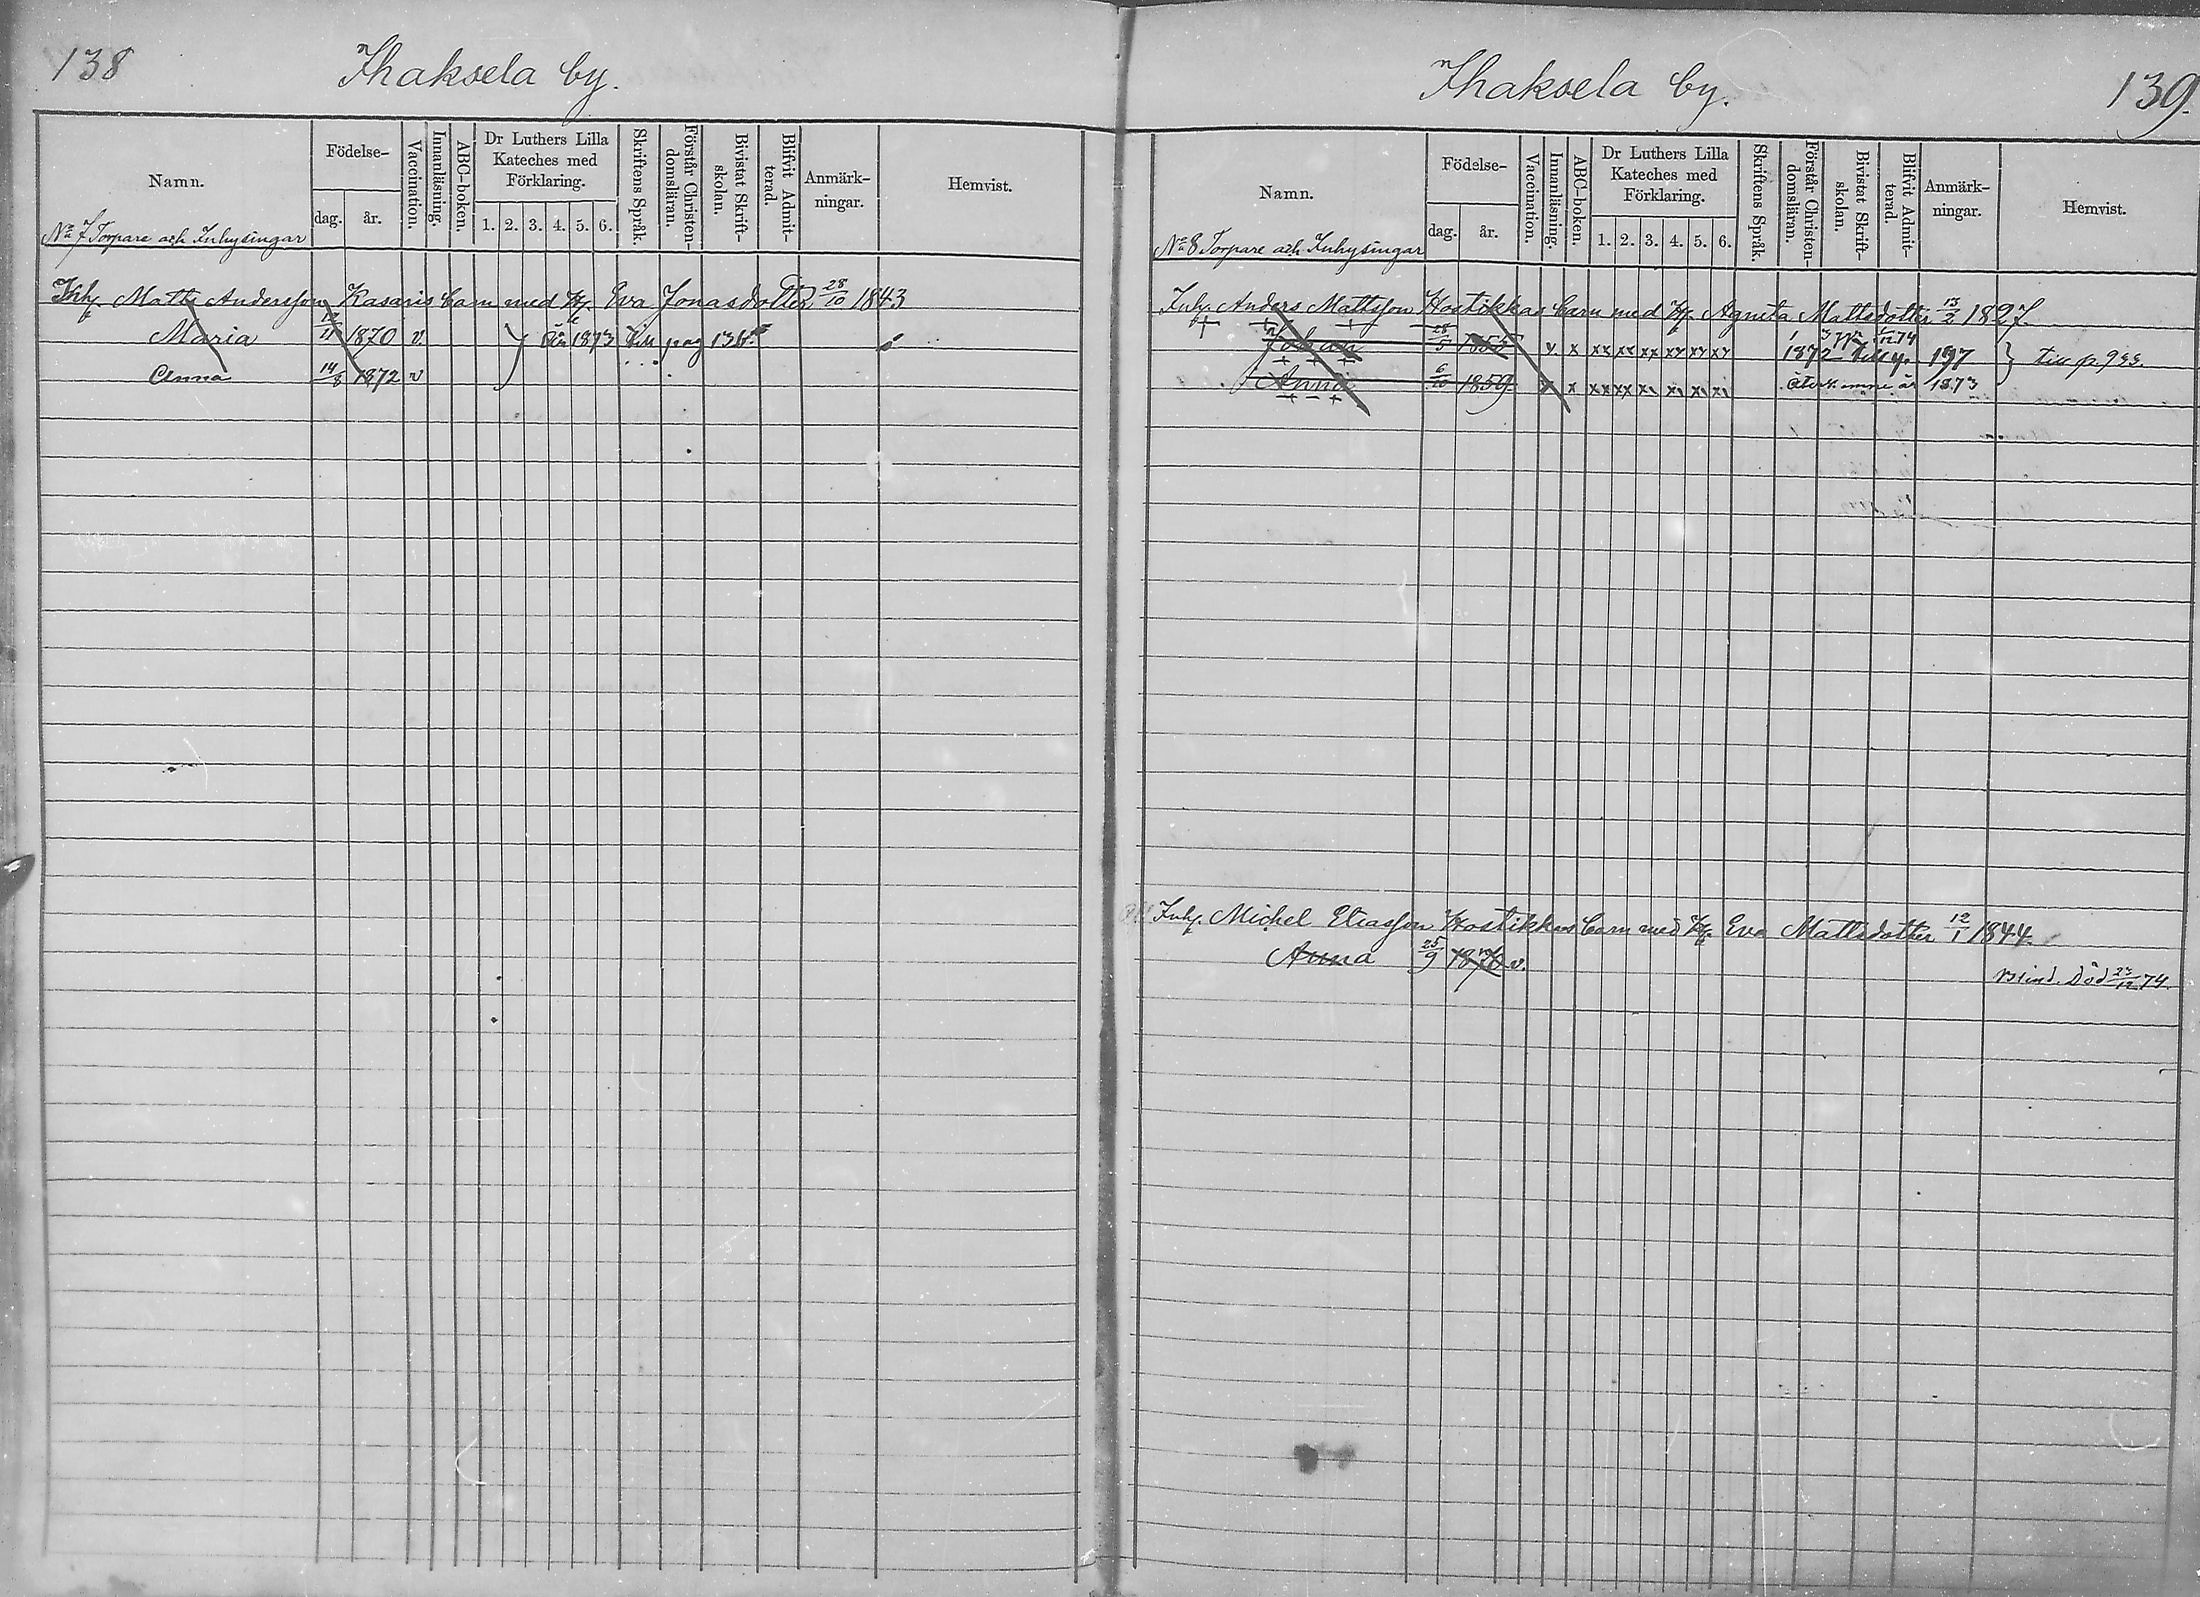 138
Ihaksela by.
Namn.
Födelse-
dag. år.
Vaccination.
Innanläsning.
ABC-boken.
Dr Luthers Lilla
Kateches med
Förklaring.
1. 2. 3. 4. 5. 6.
Skriftens Språk.
Förstår Christen-
domsläran.
Bivistat Skrift-
skolan.
Blifvit Admit-
terad.
Anmärk-
ningar.
Hemvist.
No 7 Torpare och Inhysingar
Inh. Matts Andersson Kasaris barn med H. Eva Jonasdotter 28/10 1843
Maria /11 1870 v. år 1873 till pag 136.
Anna 14/8 1872 v
Ihaksela by.
139.
Namn.
Födelse-
dag. år.
Vaccination.
Innanläsning.
ABC-boken.
Dr Luthers Lilla
Kateches med
Förklaring.
1. 2. 3. 4. 5. 6.
Skriftens Språk.
Förstår Christen-
domsläran.
Bivistat Skrift-
skolan.
Blifvit Admit-
terad.
Anmärk-
ningar.
Hemvist.
No 8 Torpare och Inhysingar
Inh. Anders Mattsson Hostikkas barn med H. Agneta Mattsdotter 13/2 1827.
Johan 28/5 v x xx xx xx xy xy xy 1872 till p. 197 till p. 933.
Anna 6/10 1859 x x xx xx x x x x år 1873
Inh. Michel Eliasson Hostikkas barn med H. Eva Mattsdotter 12/1 1844.
Anna 25/9 1870 v. Blind. Död 23/12 74.